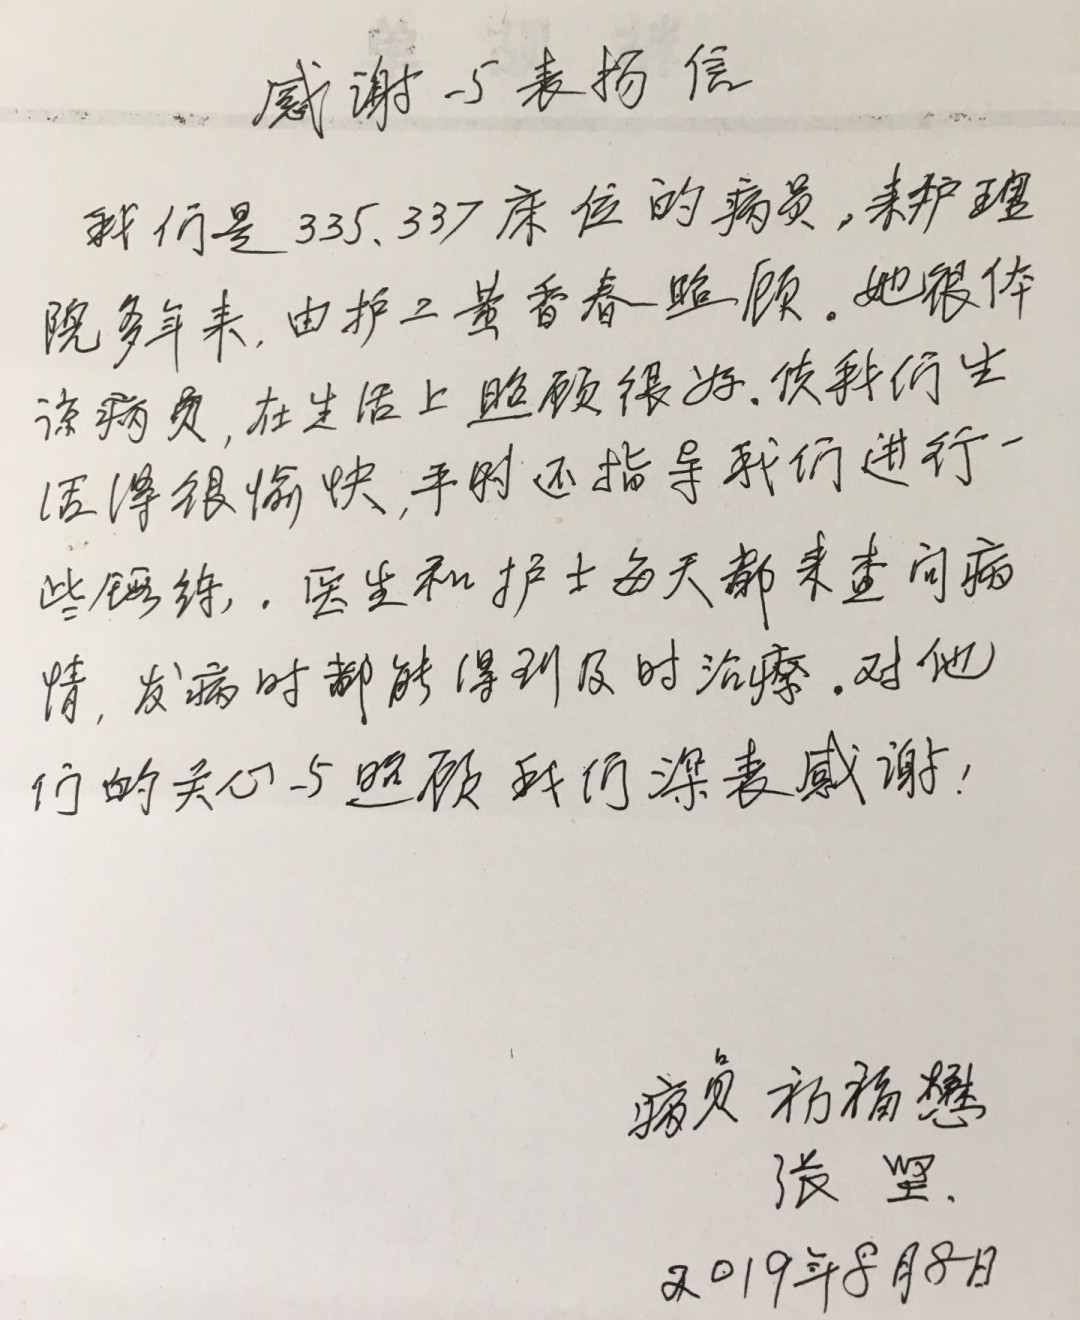 感谢与表扬信
我们是335、337床位的病员,来护理
院多年来,由护工黄香春照顾。她很体
谅病员,在生活上照顾很好.使我们生
活得很愉快,平时还指导我们进行一
些锻练,.医生和护士每天都来查问病
情,发病时都能得到及时治疗.对他
们的关心与照顾我们深表感谢!
病员 初福懋
张坚.
2019年8月8日